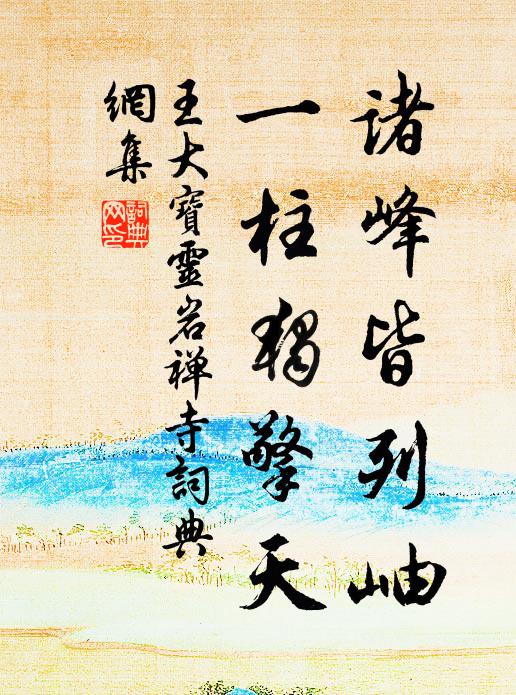 諸峰皆列岫
一柱獨擎天
王大寶靈岩禅寺詞典
網集
詞典
网印